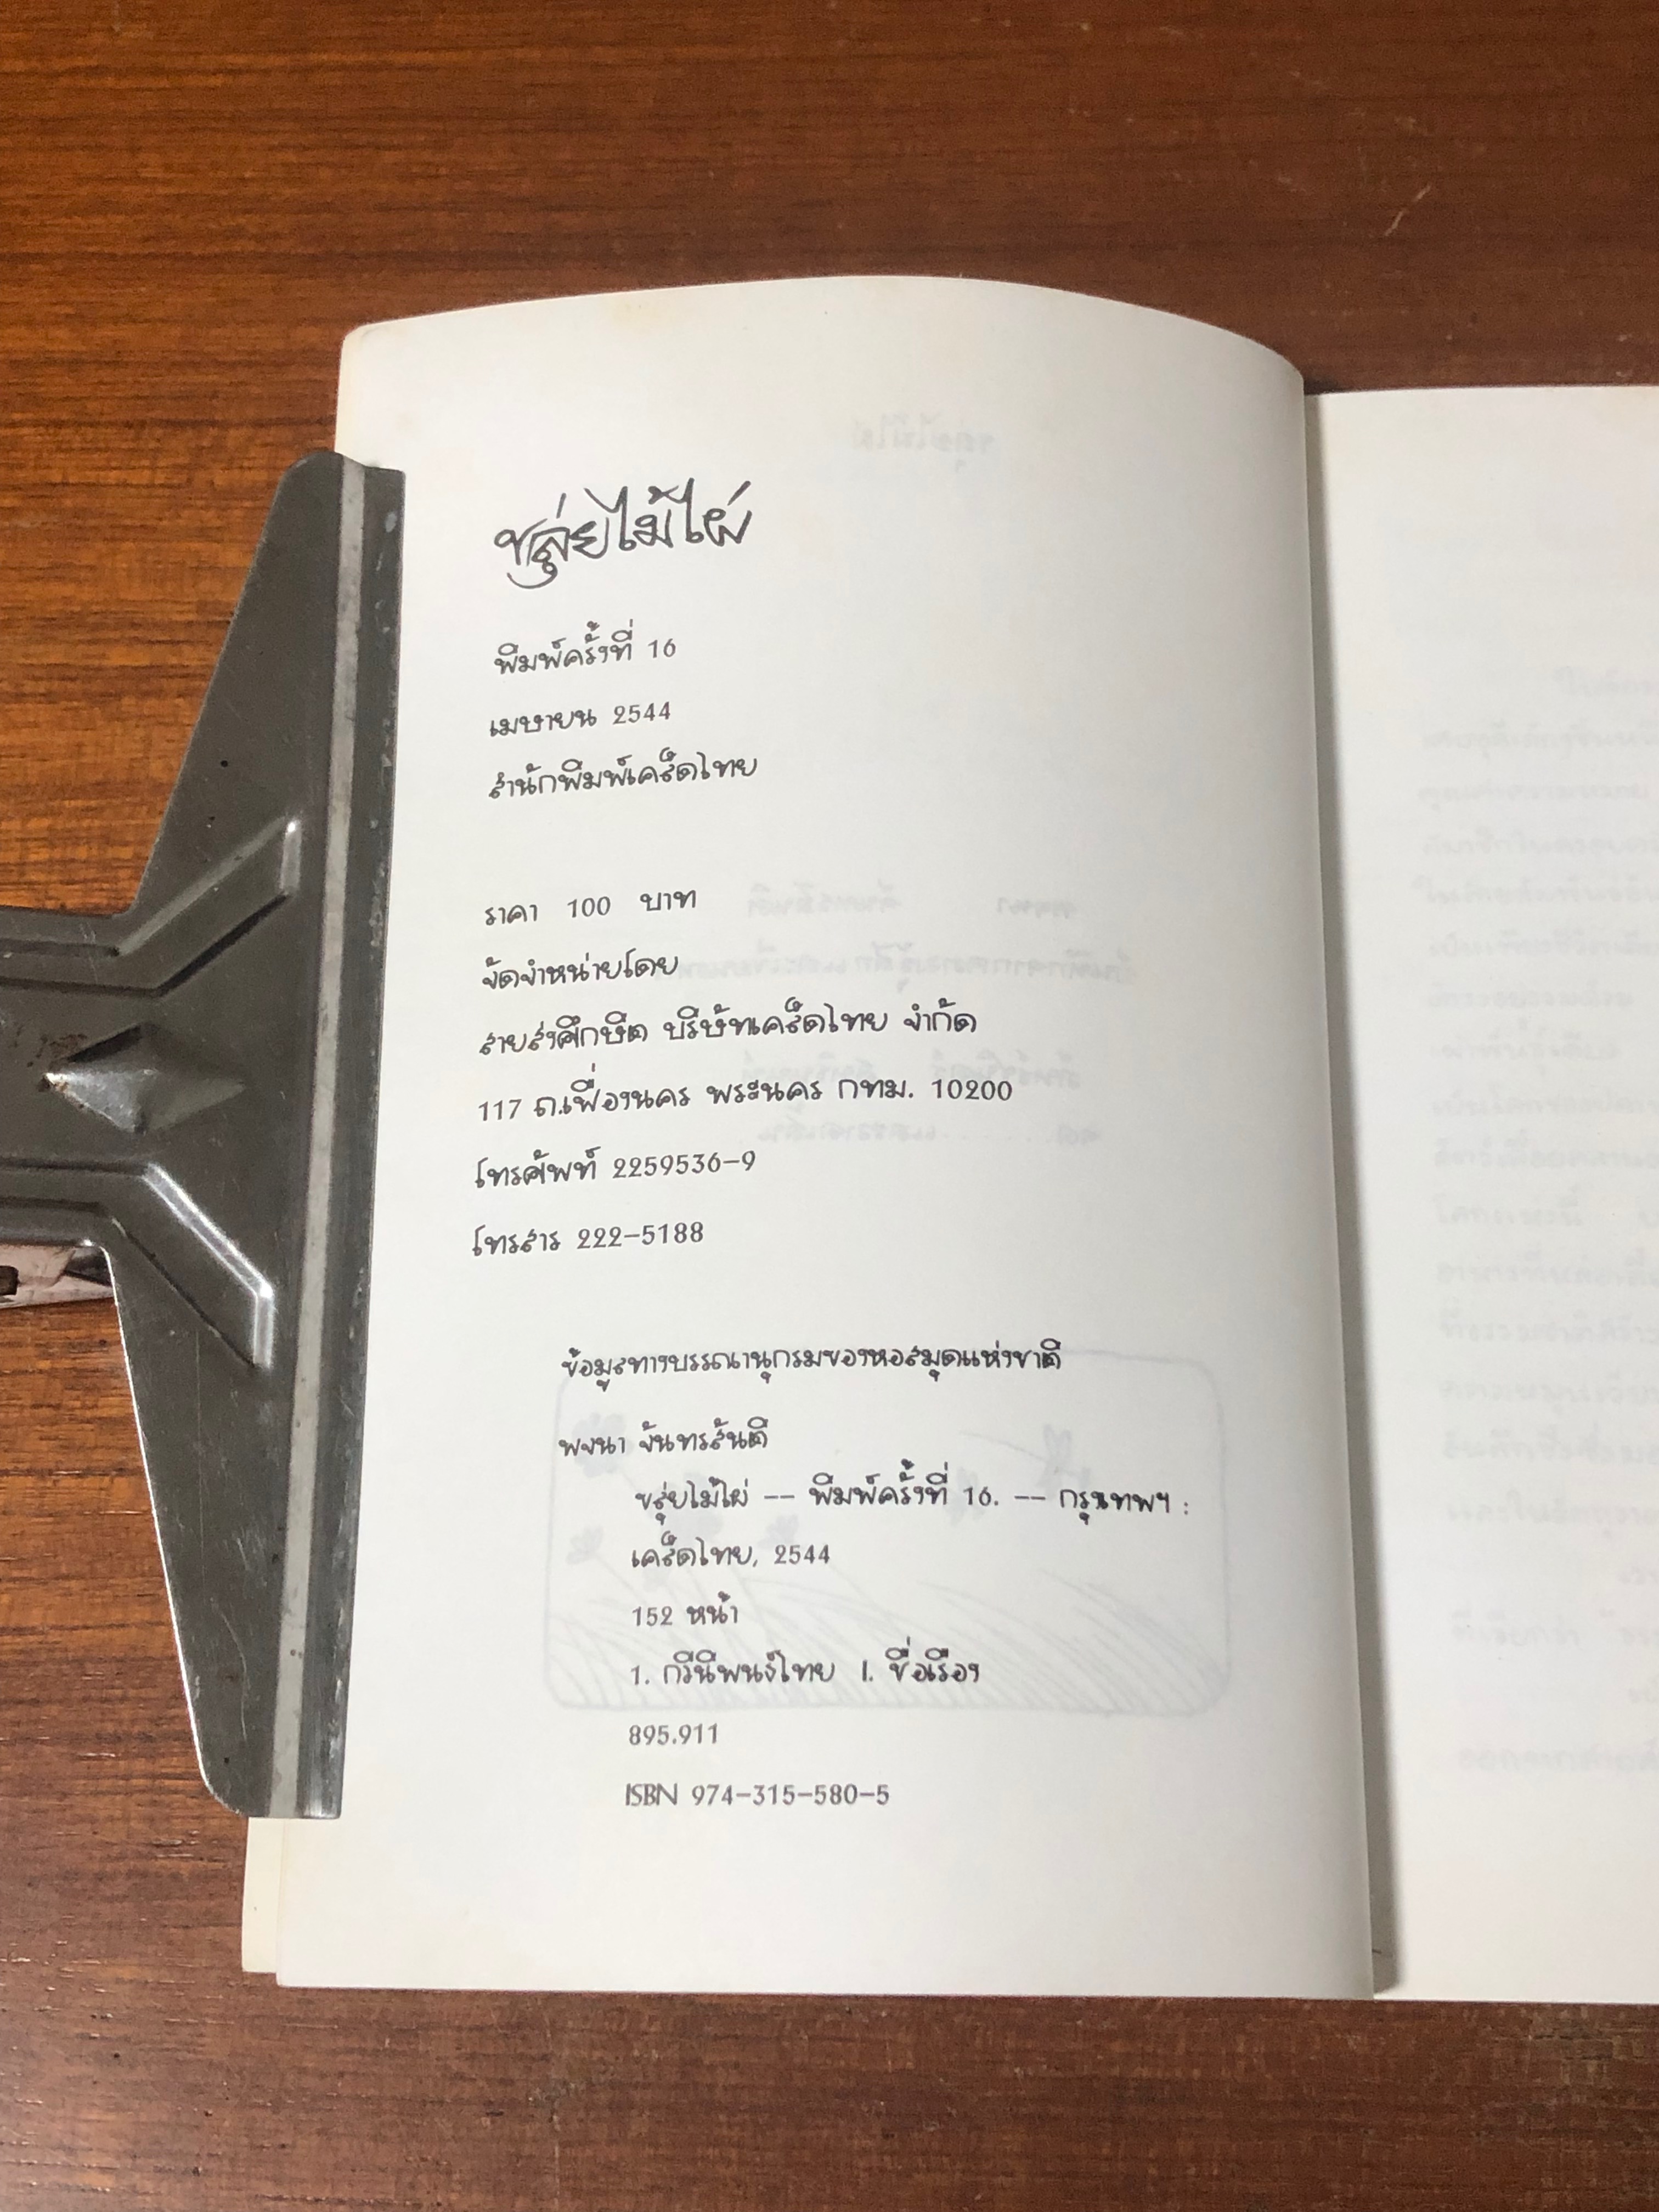 ขลุ่ยไม้ไผ่
พิมพ์ครั้งที่ 16
เมษายน 2544
สำนักพิมพ์เคล็ดไทย
ราคา 100 บาท
จัดจำหน่ายโดย
สายส่งศึกษิต บริษัทเคล็ดไทย จำกัด
117 ถ.เฟื่องนคร พระนคร กทม. 10200
โทรศัพท์ 2259536-9
โทรสาร 222-5188
ข้อมูลทางบรรณานุกรมของหอสมุดแห่งชาติ
พจนา จันทรสันติ
ขลุ่ยไม้ไผ่ -- พิมพ์ครั้งที่ 16. -- กรุงเทพฯ :
เคล็ดไทย, 2544
152 หน้า
1. กวีนิพนธ์ไทย I. ชื่อเรื่อง
895.911
ISBN 974-315-580-5